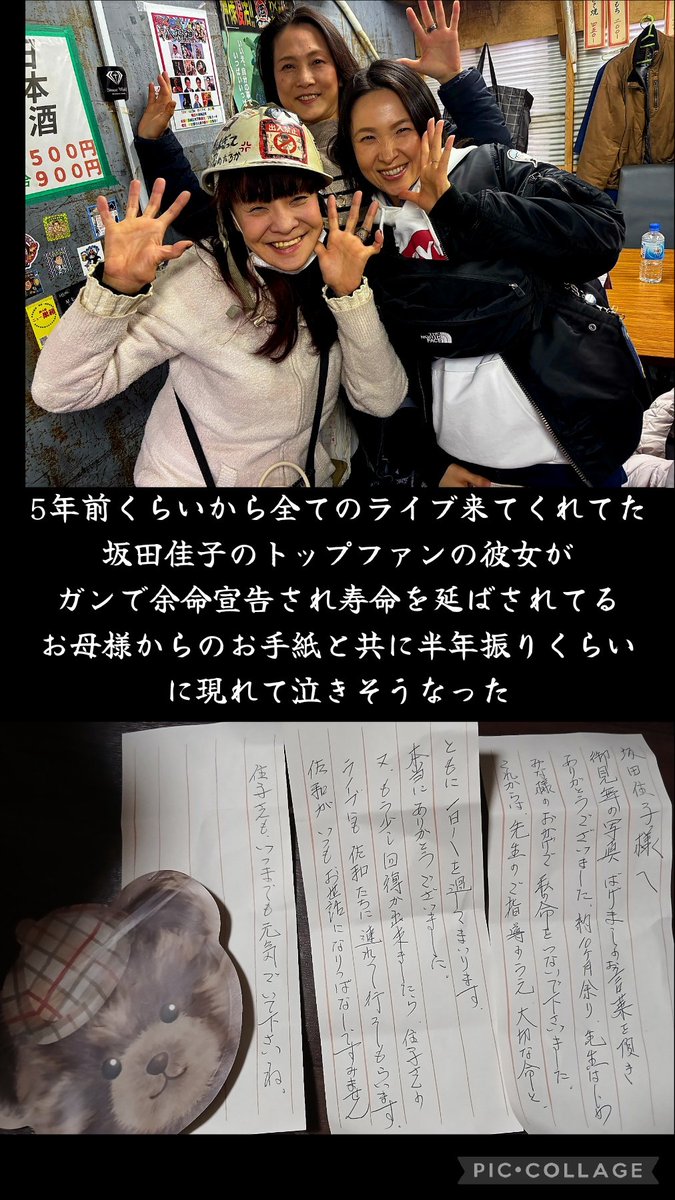 日本酒
500円
900円
出入禁止
THE NORTH FACE
5年前くらいから全てのライブ来てくれてた
坂田佳子のトップファンの彼女が
ガンで余命宣告され寿命を延ばされてる
お母様からのお手紙と共に半年振りくらい
に現れて泣きそうなった
坂田佳子様へ
御見舞の写真 はげましのお言葉を頂き
ありがとうございました。約10ヶ月余り 先生はじめ
みな様のおかげで 私の命をつないで下さいました。
これからは、先生のご指導のうえ 大切な命と、
ともに 一日一日を過してまいります。
本当にありがとうございました。
又、もう少し回復が出来ましたら 佳子さんの
ライブにも 佐和たちに連れて行ってもらいます。
佐和が いつもお世話になりっぱなしですみません
佳子さんも、いつまでも元気でいて下さいね。
PIC•COLLAGE